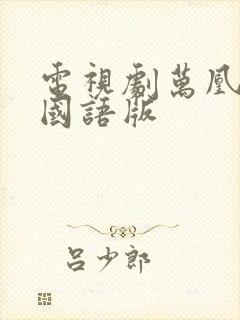 電視劇萬凰
國語版
呂少郎